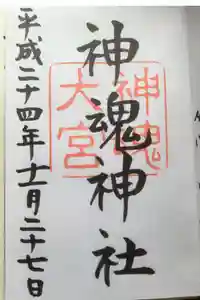 神魂神社
神魂
大宮
平成二十四年十一月二十七日